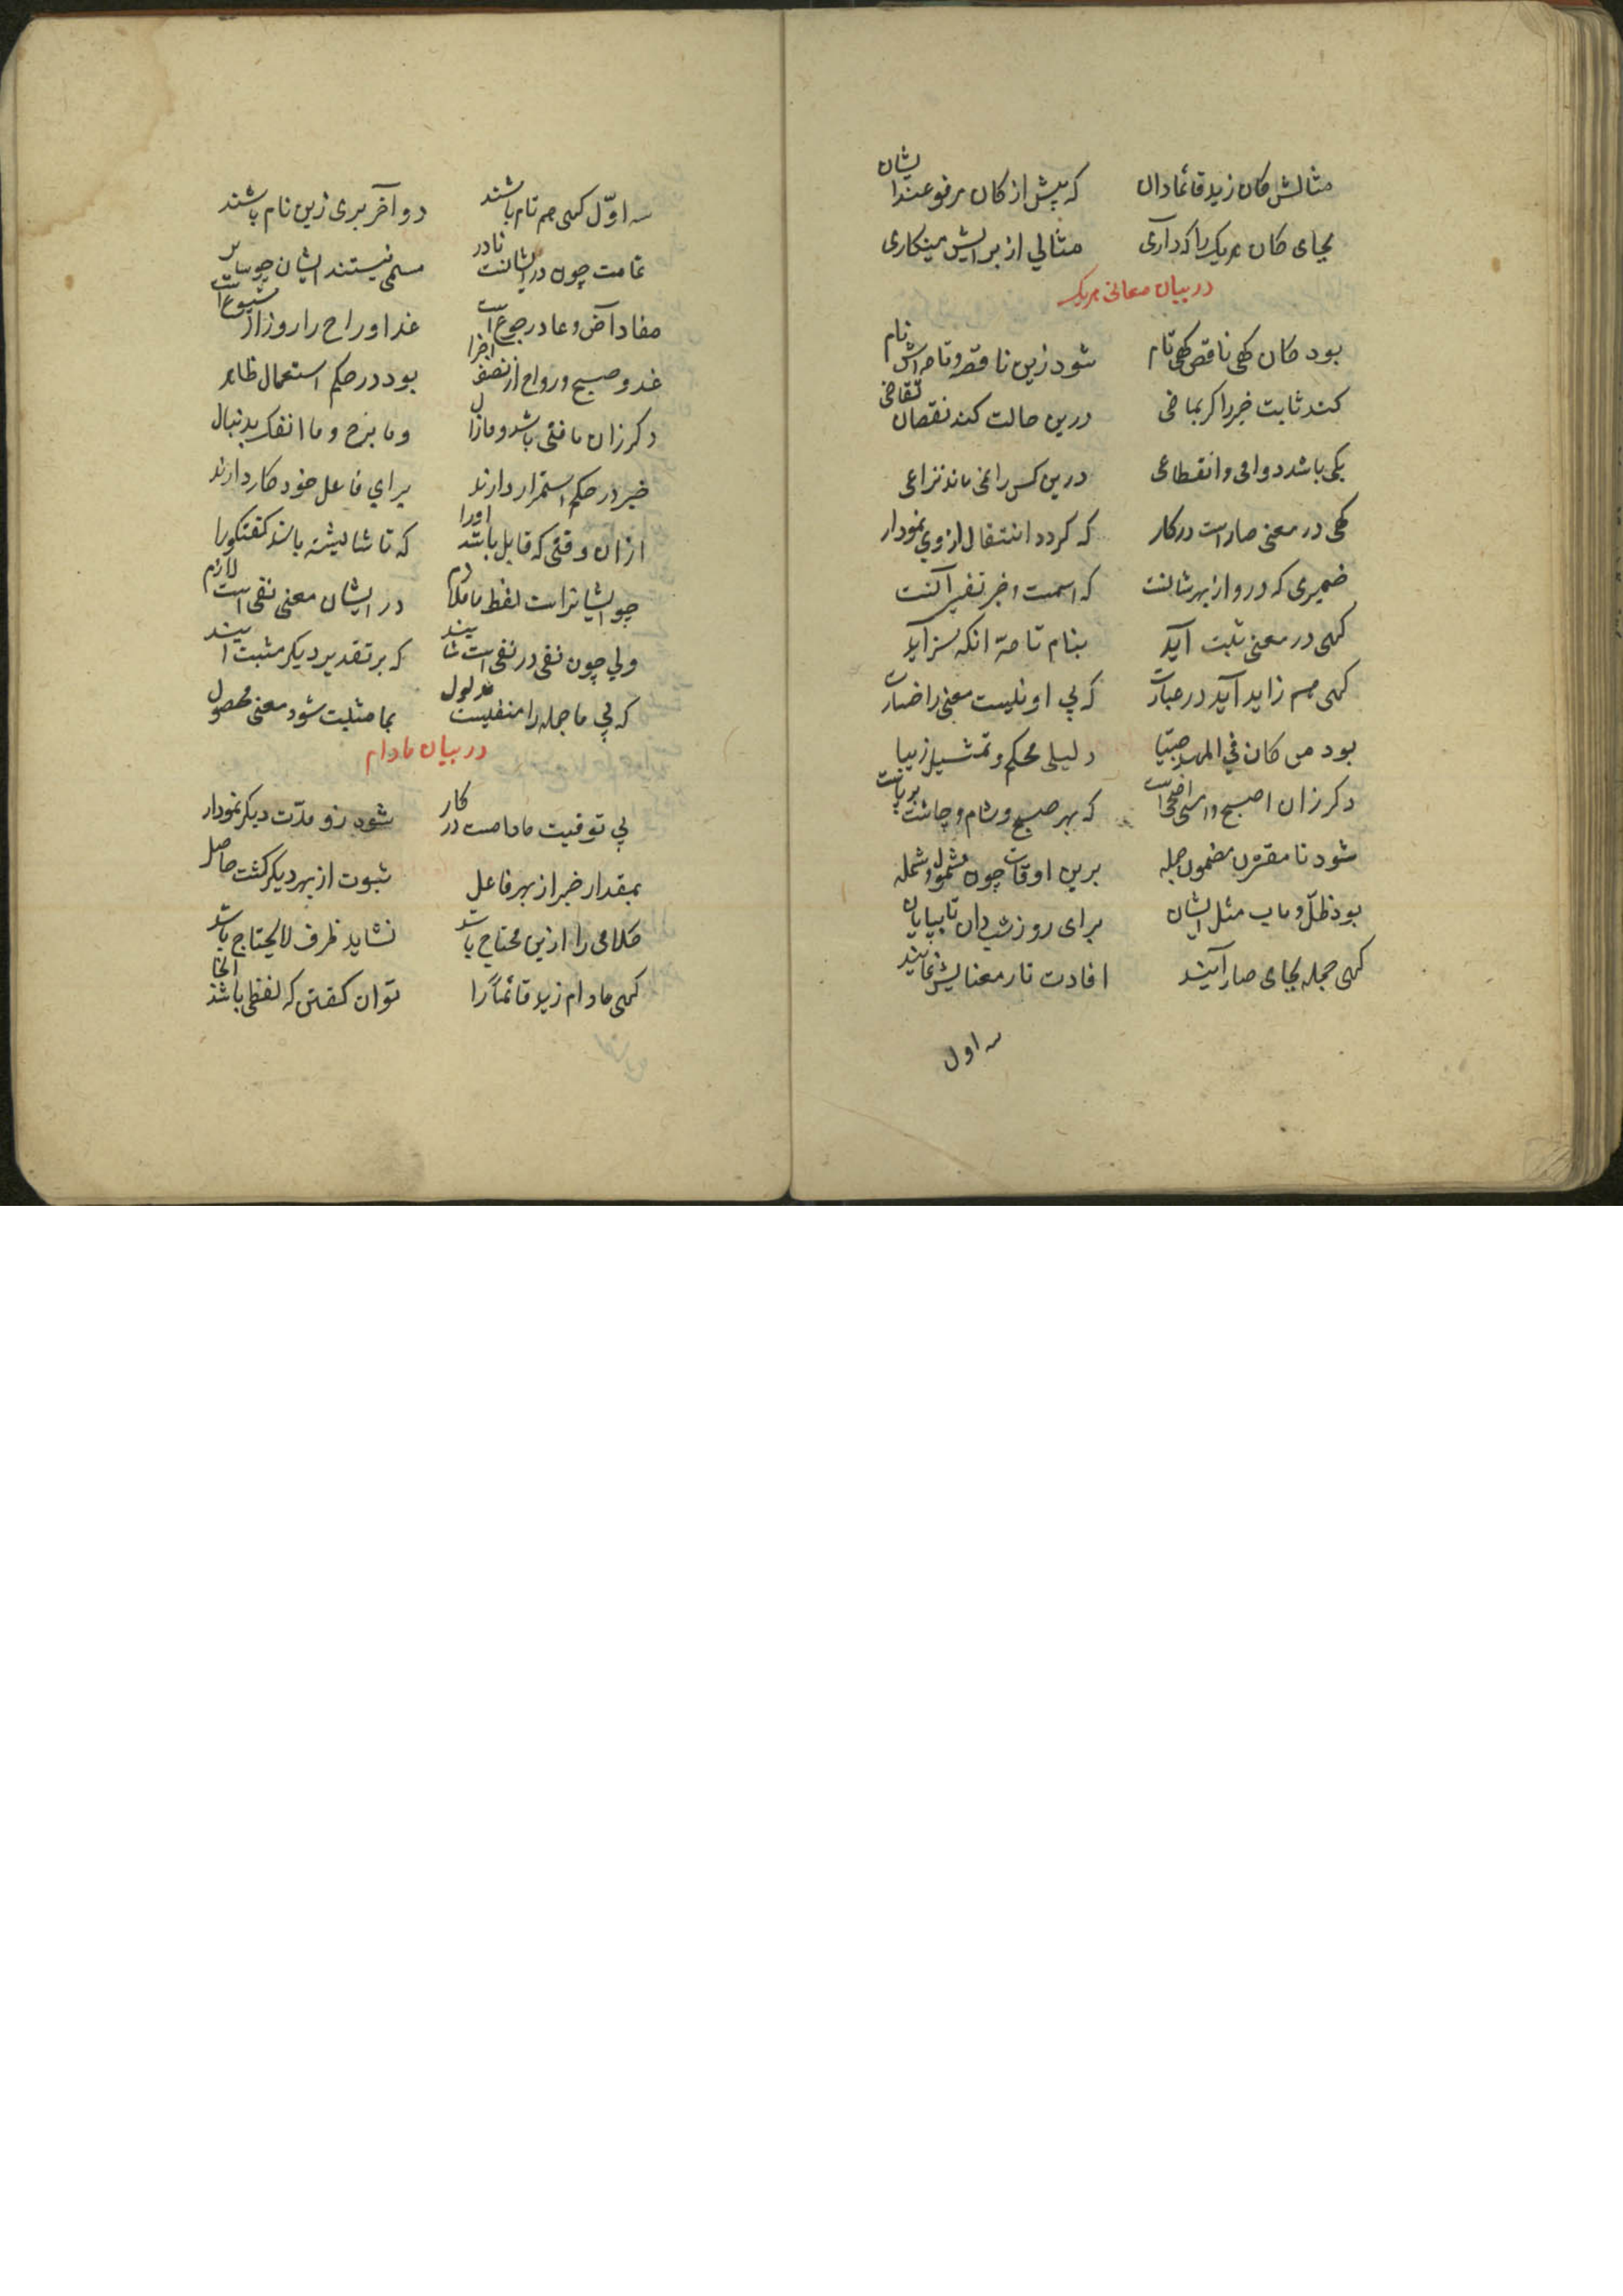 مثالش کان زید قائما دان که پیش از کان مرفوعند ایشان
بجای کان هر یک را که داری مثالی از برایش مینکاری
در بیان معانی هر یک
بود کان کهی ناقص کهی تام شود زین ناقصه و تامه اش نام
کند ثابت خبر را کر بماضی درین حالت کند نقصان تقاضی
یکی باشد دوامی و انقطاعی درین کس را نمی ماند نزاعی
کهی در معنی صار است در کار که کردد انتقال از وی نمودار
ضمیری که درو از بهر شانست که اسمست و خبر تفسیر آنست
کهی در معنی ثبت آید بنام تامة انکه سزاید
کهی هم زاید آید در عبارت که بی او نیست معنی را خسارت
بود من کان فی المهد صبیا دلیلی محکم و تمثیل زیبا
دکر زان اصبح و امسی اضحی است که بهر صبح و شام و چاشت برپاست
شود تا مقترن مضمون جمله برین اوقات چون مشمول شمله
بود ظلّ و بات مثل ایشان برای روز شب دان تا بپایان
کهی جمله بجای صار آیند افادت تار معنایش نمایند
سه اول
سه اوّل کهی هم تام باشند دو آخر بری زین نام باشند
تمامت چون در ایشانست نادر مسمی نیستند ایشان چو سایر
مفاد آض و عاد رجوع است غدا و راح را روز از شیوع است
غدو صبح و رواح از نصف اخرا بود در حکم استعمال ظاهر
دکر زان ما فتی باشد و مازال و ما برح و ما انفک بدنبال
خبر در حکم استمرار دارند برای فاعل خود کار دارند
ازان وقتی که قابل باشد اورا که تا شایسته باشد کفتکورا
چو ایشانراست لفظ ما ملازم در ایشان معنی نفی است لازم
ولی چون نفی در نفی است شایند که بر تقدیر دیکر مثبت آیند
که بی ما جمله را منفیست مدلول بما مثبت شود معنی محصول
در بیان مادام
پی توقیت مادامست در کار شود زو مدّت دیکر نمودار
بمقدار خبر از بهر فاعل ثبوت از بهر دیکر کشت حاصل
کلامی را ازین محتاج باشد نشاید ظرف لا یحتاج باشد
کهی مادام زید قائماً را توان کفتن که لفظی باشد